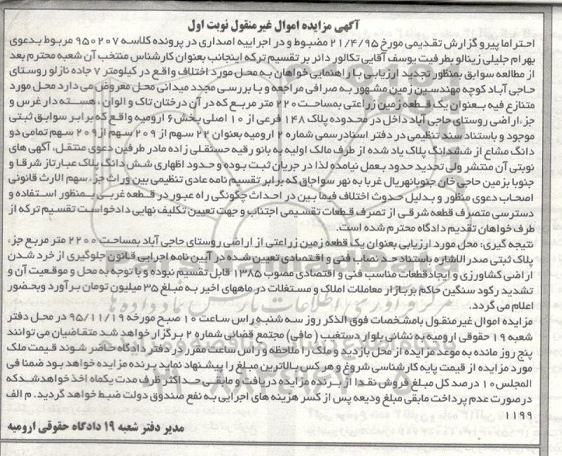 آگهی مزایده اموال غیر منقول نوبت اول
احتراما پیرو گزارش تقدیمی مورخ ۲۱/۴/۹۵ مضبوط و در اجراییه اصداری در پرونده کلاسه ۹۵۰۲۰۷ مربوط بدعوی
بهرام جلیلی زینالو بطرفیت یوسف آقایی تکالور دائر بر تقسیم ترکه اینجانب بعنوان کارشناس منتخب آن شعبه محترم بعد
از مطالعه سوابق بمنظور تجدید ارزیابی با راهنمایی خواهان به محل مورد اختلاف واقع در کیلومتر ۷ جاده نازلو روستای
حاجی آباد کوچه مهندسین زمین مشهور به صرافی مراجعه و با بررسی مجدد میدانی محل معروض می دارد محل مورد
متنازع فیه بعنوان یک قطعه زمین زراعتی بمساحت ۲۲۰۰ متر مربع که در آن درختان تاک و الوان، هسته دار غرس و
جزء اراضی روستای حاجی آباد داخل در محدوده پلاک ۱۴۸ فرعی از ۱۰ اصلی بخش ۶ ارومیه واقع که برابر سوابق ثبتی
موجود و باستناد سند تنظیمی در دفتر اسناد رسمی شماره ۲ ارومیه بعنوان ۲۲ سهم از ۲۰۹ سهم از ۲۰۹ سهم تمامی دو
دانگ مشاع از ششدانگ پلاک یاد شده از طرف مالک اولیه به بانو رقیه حسنقلی زاده مادر طرفین دعوی منتقل، آگهی های
نوبتی آن منتشر ولی تحدید حدود بعمل نیامده لذا در جریان ثبت بوده و حدود اظهاری شش دانگ پلاک عبارتاز شرقا و
جنوبا بزمین حاجی خان جنوبا بهریال غربا به نهر سواجاق که برابر تقسیم نامه عادی تنظیمی بین وراث جزء سهم الارث قانونی
اصحاب دعوی منظور و بدلیل حدوث اختلاف فیما بین در احداث چگونگی راه عبور در قطعه غربی بمنظور استفاده و
دسترسی متصرف قطعه شرقی از تصرف قطعات تقسیمی اجتناب و جهت تعیین تکلیف نهایی دادخواست تقسیم ترکه از
طرف خواهان تقدیم دادگاه محترم شده است.
نتیجه گیری: محل مورد ارزیابی بعنوان یک قطعه زمین زراعتی از اراضی روستای حاجی آباد بمساحت ۲۲۰۰ متر مربع جزء
پلاک ثبتی صدر الاشاره باستناد حد نصاب فنی و اقتصادی تعیین شده در آیین نامه اجرایی قانون جلوگیری از خرد شدن
اراضی کشاورزی و ایجاد قطعات مناسب فنی و اقتصادی مصوب ۱۳۸۵ قابل تقسیم نبوده و با توجه به محل و موقعیت آن و
تشدید رکود سنگین حاکم بر بازار معاملات املاک و مستغلات در ماههای اخیر به مبلغ ۳۵ میلیون تومان برآورد وبحضور
اعلام می گردد.
مزایده اموال غیر منقول بامشخصات فوق الذکر روز سه شنبه راس ساعت ۱۰ صبح مورخه ۹۵/۱۱/۱۹ در محل دفتر
شعبه ۱۹ حقوقی ارومیه به نشانی بلوار دستغیب (عالی) مجتمع قضایی شماره ۲ برگزار خواهد شد متقاضیان می توانند
پنج روز مانده به موعد مزایده از محل بازدید و ملک را ملاحظه و راس ساعت مقرر در دفتر دادگاه حاضر شوند قیمت ملک
مورد مزایده از قیمت پایه کارشناسی شروع و هر کس بالاترین مبلغ را پیشنهاد نماید برنده مزایده خواهد بود ضمنا فی
المجلس ۱۰ درصد کل مبلغ فروش نقدا از برنده مزایده دریافت و مابقی حداکثر ظرف مدت یکماه اخذ خواهد شد که
در صورت عدم پرداخت مابقی مبلغ ودیعه پس از کسر هزینه های اجرایی به نفع صندوق دولت ضبط خواهد گردید. م الف
۱۱۹۹
مدیر دفتر شعبه ۱۹ دادگاه حقوقی ارومیه